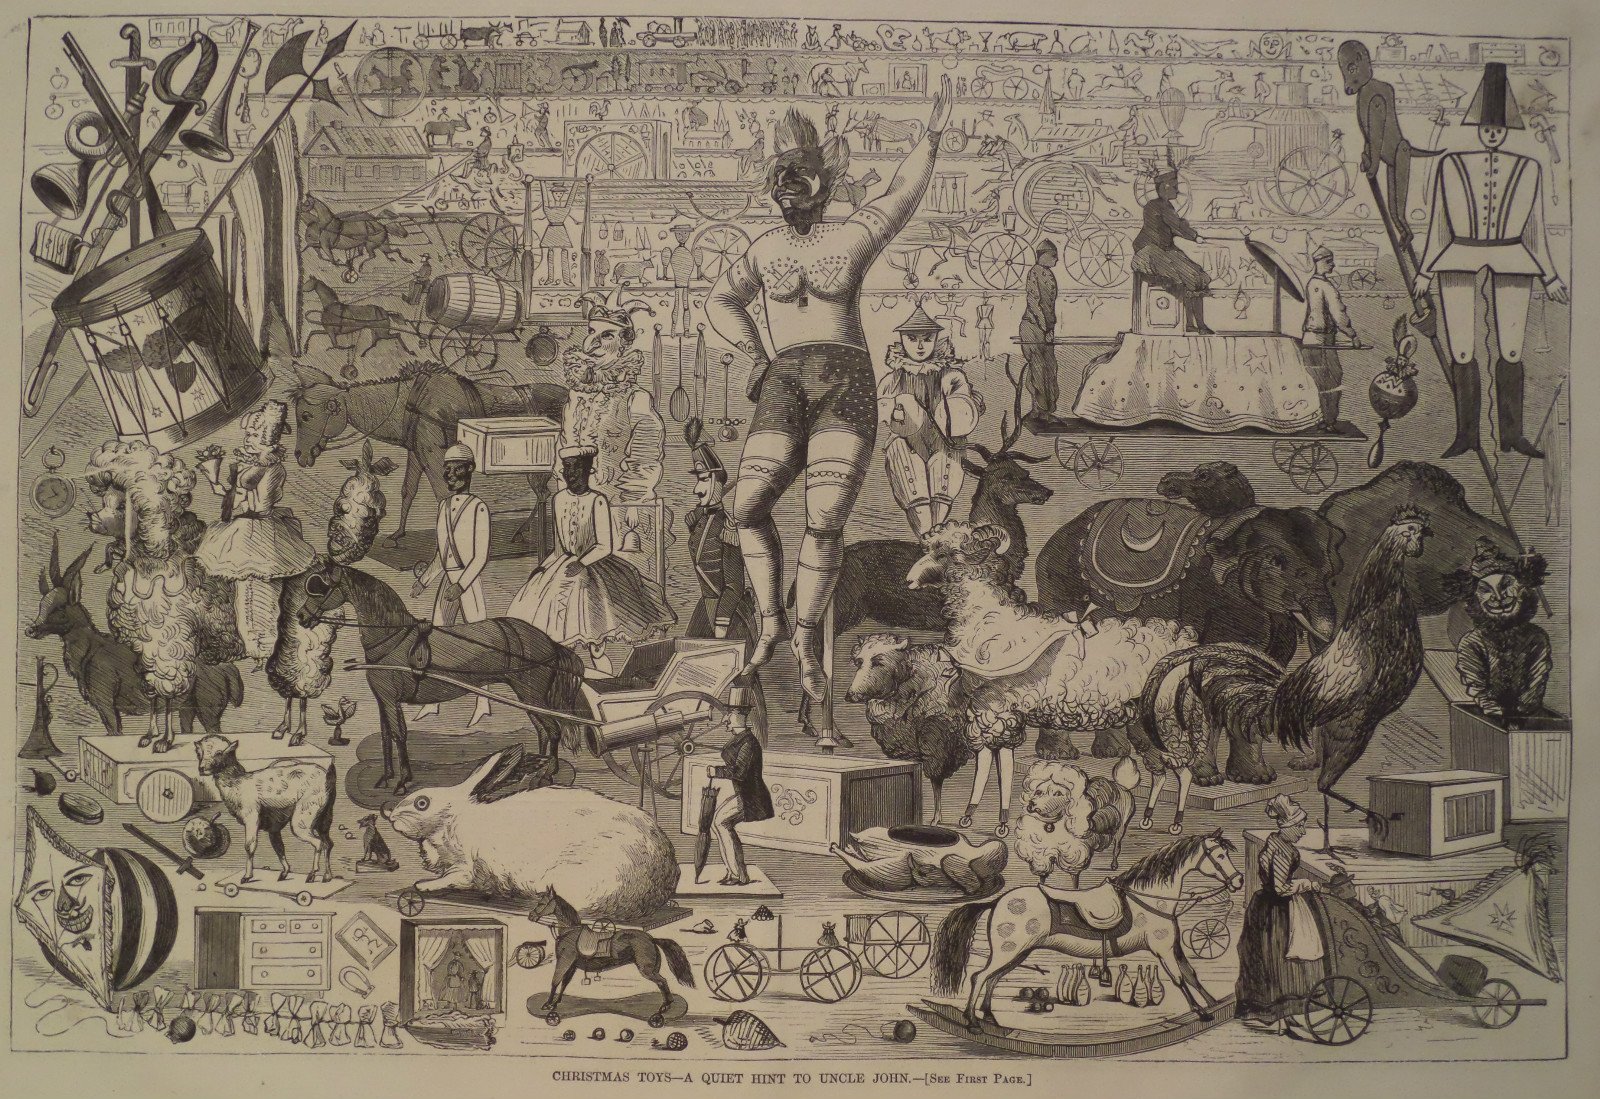 CHRISTMAS TOYS—A QUIET HINT TO UNCLE JOHN.—[See First Page.]